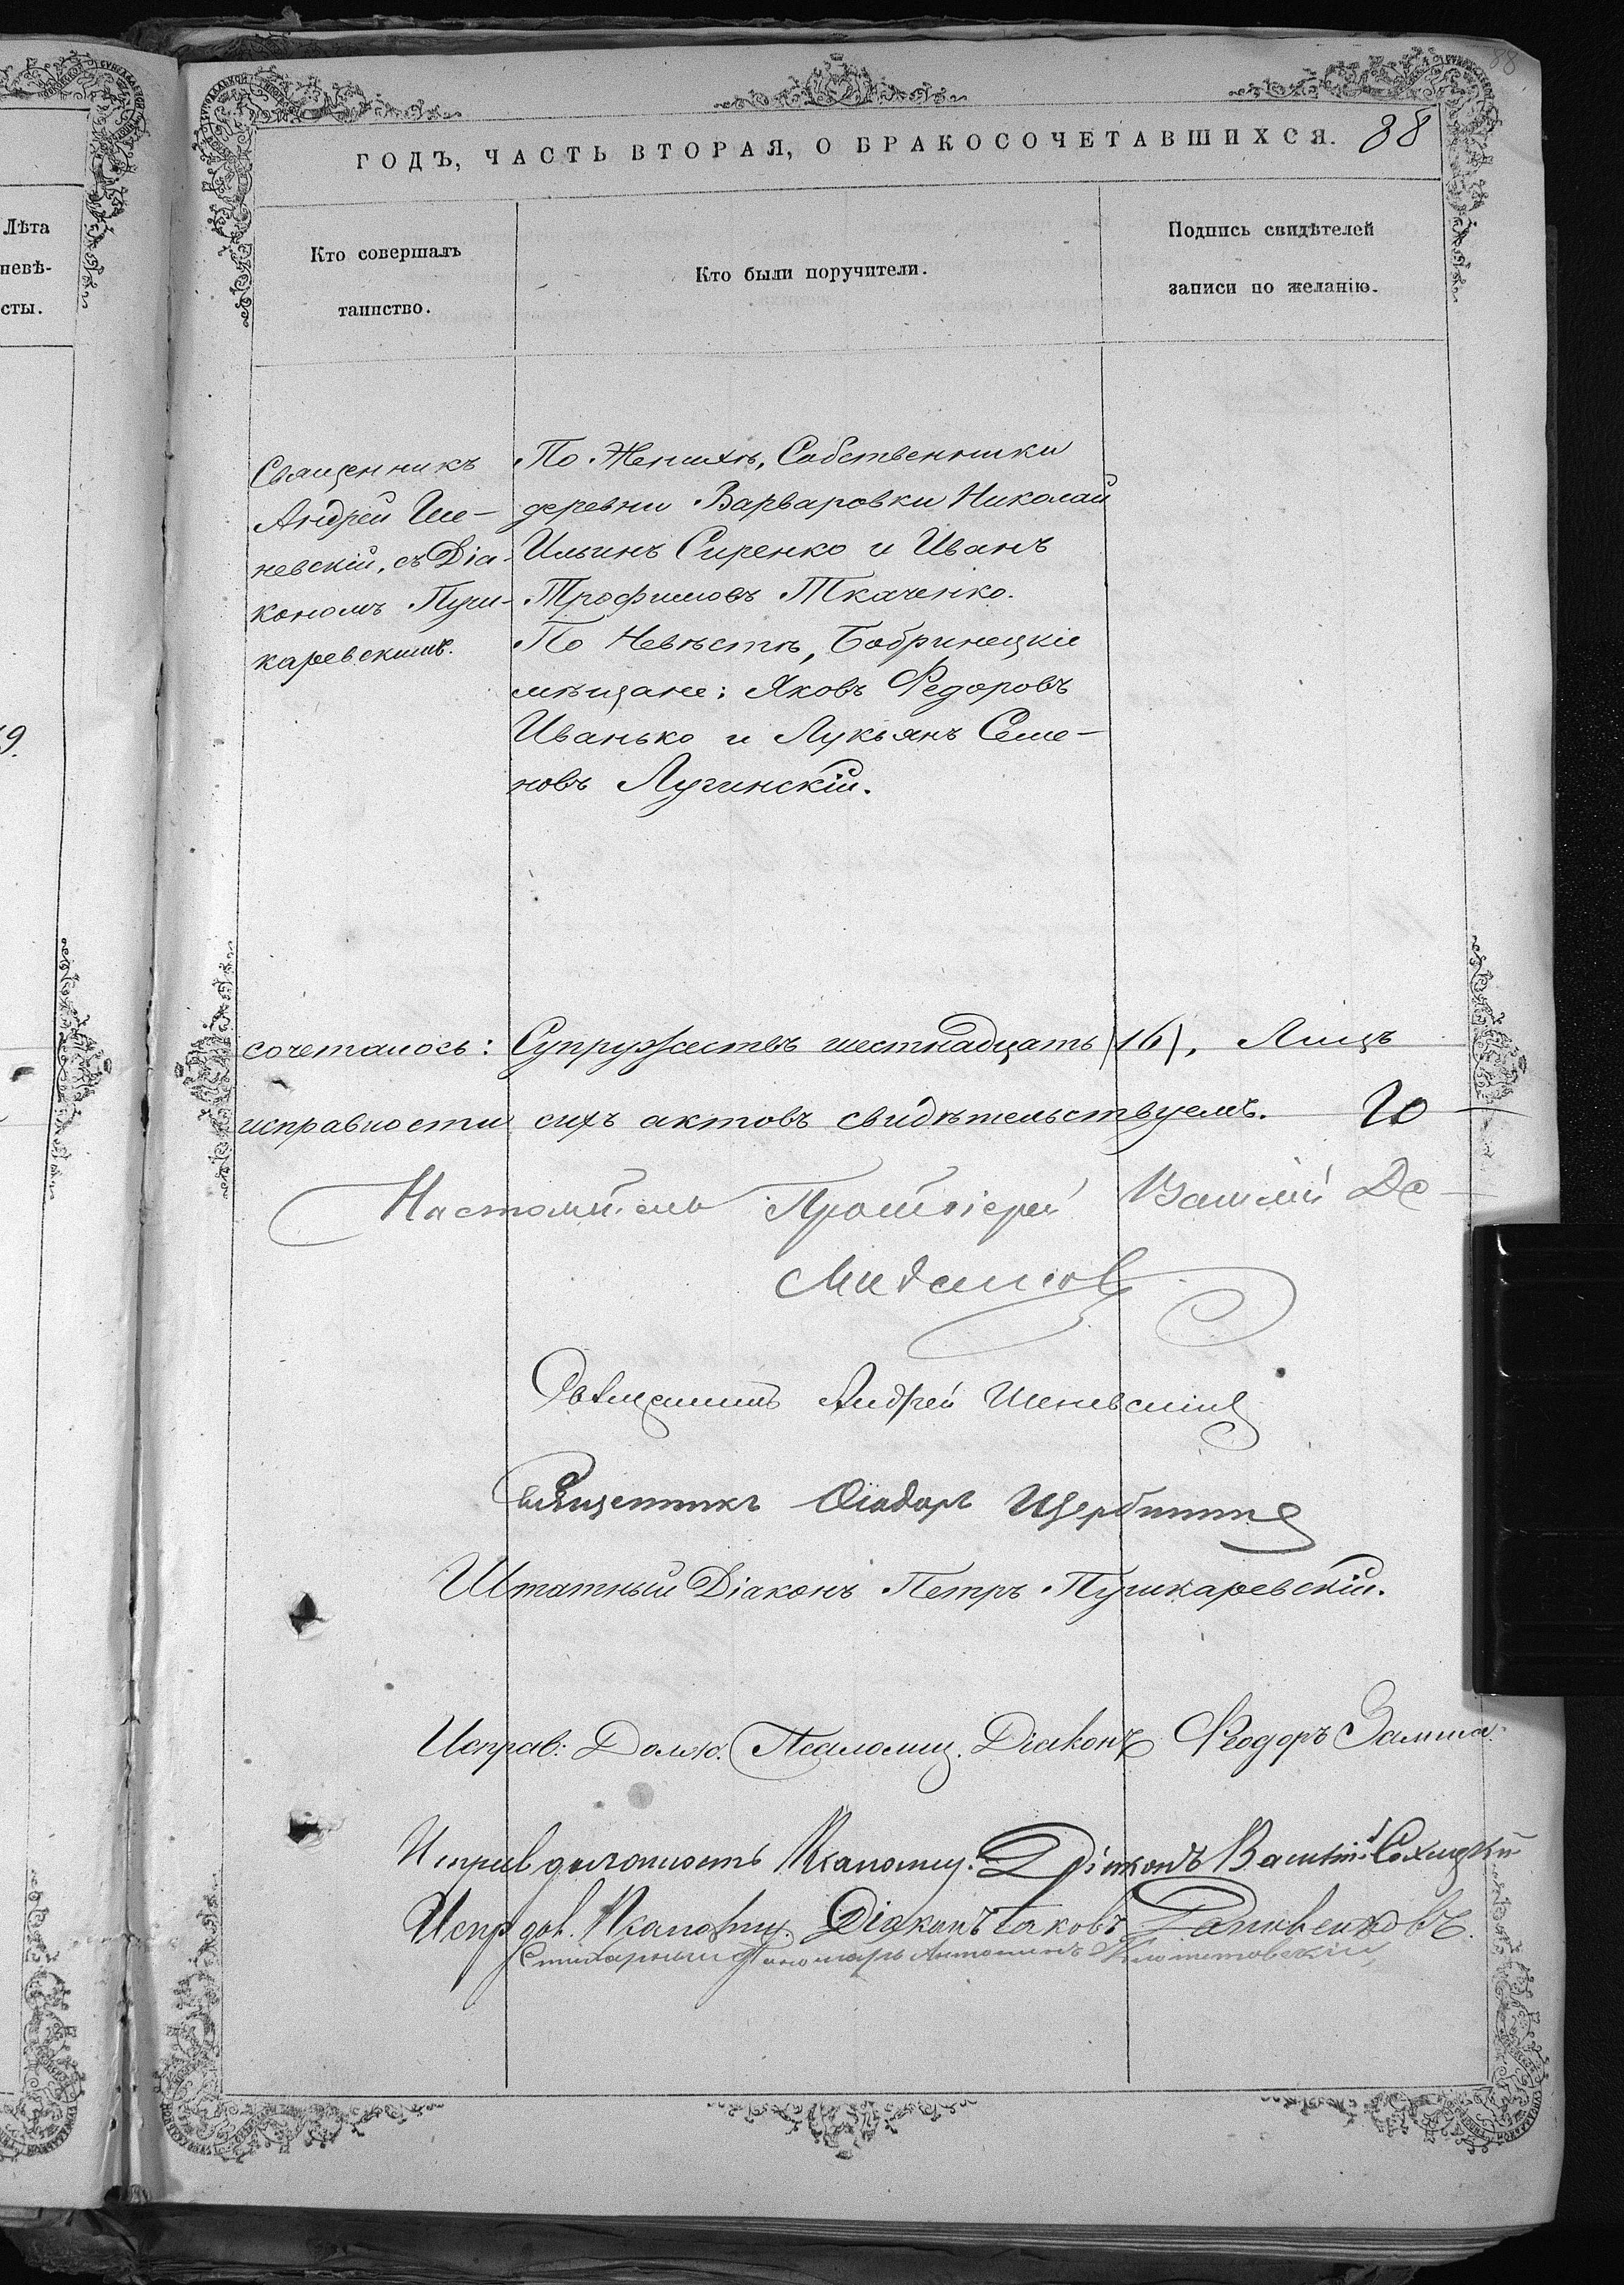 88
ГОДЪ, ЧАСТЬ ВТОРАЯ, О БРАКОСОЧЕТАВШИХСЯ. 88
Лѣта
невѣ-
сты.
Кто совершалъ
таинство.
Кто были поручители.
Подпись свидѣтелей
записи по желанію.
Священникъ
Андрей Ше-
невскій, съ Діа-
кономъ Пуш-
каревскимъ.
По Женихѣ, Собственники
деревни Варваровки Николай
Ильинъ Сиренко и Иванъ
Трофимовъ Ткаченко.
По Невѣстѣ, Бобринецкіе
мѣщане: Яковъ Федоровъ
Иванько и Лукьянъ Семе-
новъ Лучинскій.
9.
сочеталось: Супружествъ шестнадцать (16), Лицъ
исправности сихъ актовъ свидѣтельствуемъ.
Настоятель Протоіерей Василій
Священникъ Андрей Шеневскій
Священникъ Ѳеодоръ Щербина
Штатный Діаконъ Петръ Пушкаревскій.
Исправ: Долж. Псаломщ. Діаконъ Ѳеодоръ
Исправ должность Псаломщ. Діаконъ Василій
Испр дол. Псаломщ. Діаконъ Іаковъ
Стихарный Пономарь Антонинъ